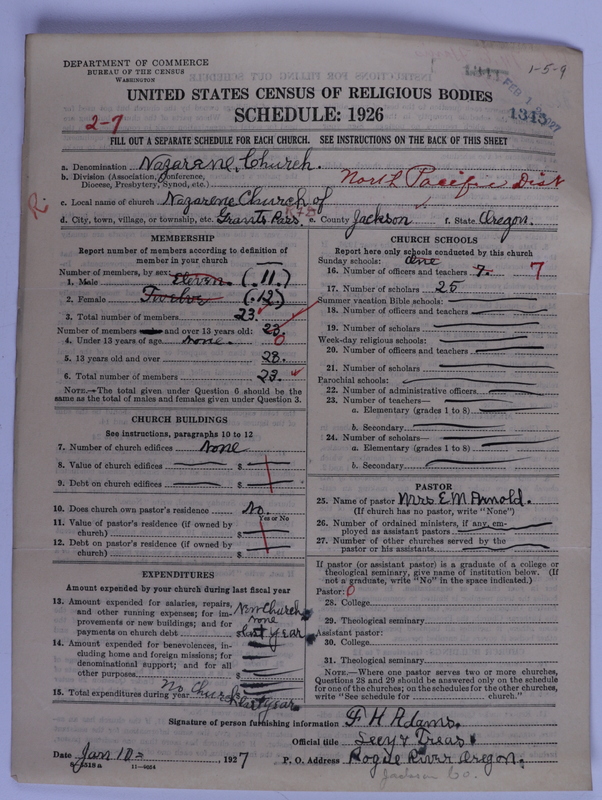 DEPARTMENT OF COMMERCE
BUREAU OF THE CENSUS
WASHINGTON
1-5-9
1315
UNITED STATES CENSUS OF RELIGIOUS BODIES
SCHEDULE: 1926
2-7
FILL OUT A SEPARATE SCHEDULE FOR EACH CHURCH. SEE INSTRUCTIONS ON THE BACK OF THIS SHEET
a. Denomination Nazarene Church.
b. Division (Association, Conference,
Diocese, Presbytery, Synod, etc.) North Pacific Dist
R.
c. Local name of church Nazarene Church of
d. City, town, village, or township, etc. Grants Pass. e. County Jackson f. State Oregon.
MEMBERSHIP
Report number of members according to definition of
member in your church
Number of members, by sex:
1. Male Eleven. (.11.)
2. Female Twelve (.12)
3. Total number of members 23.
Number of members and over 13 years old: 23.
4. Under 13 years of age None. 0
5. 13 years old and over 23.
6. Total number of members 23.
NOTE.—The total given under Question 6 should be the
same as the total of males and females given under Question 3.
CHURCH BUILDINGS
See instructions, paragraphs 10 to 12
7. Number of church edifices None
8. Value of church edifices $
9. Debt on church edifices $
10. Does church own pastor's residence No.
Yes or No
11. Value of pastor's residence (if owned by
church) $
12. Debt on pastor's residence (if owned by
church) $
EXPENDITURES
Amount expended by your church during last fiscal year
13. Amount expended for salaries, repairs,
and other running expenses; for im-
provements or new buildings; and for
payments on church debt
New Church
None
last year
14. Amount expended for benevolences, in-
cluding home and foreign missions; for
denominational support; and for all
other purposes $
15. Total expenditures during year No Church last year
CHURCH SCHOOLS
Report here only schools conducted by this church
Sunday schools: One
16. Number of officers and teachers 7. 7
17. Number of scholars 25
Summer vacation Bible schools:
18. Number of officers and teachers
19. Number of scholars
Week-day religious schools:
20. Number of officers and teachers
21. Number of scholars
Parochial schools:
22. Number of administrative officers
23. Number of teachers—
a. Elementary (grades 1 to 8)
b. Secondary
24. Number of scholars—
a. Elementary (grades 1 to 8)
b. Secondary
PASTOR
25. Name of pastor Mrs E M Arnold.
(If church has no pastor, write "None")
26. Number of ordained ministers, if any, em-
ployed as assistant pastors
27. Number of other churches served by the
pastor or his assistants
If pastor (or assistant pastor) is a graduate of a college or
theological seminary, give name of institution below. (If
not a graduate, write "No" in the space indicated.)
Pastor: 0
28. College
29. Theological seminary
Assistant pastor:
30. College
31. Theological seminary
NOTE.—Where one pastor serves two or more churches,
Questions 28 and 29 should be answered only on the schedule
for one of the churches; on the schedules for the other churches,
write "See schedule for church."
Signature of person furnishing information F. H. Adams.
Official title Secy & Treas
Date Jan 10 1927 P. O. Address Rogue River Oregon.
11-9664
Jackson Co.